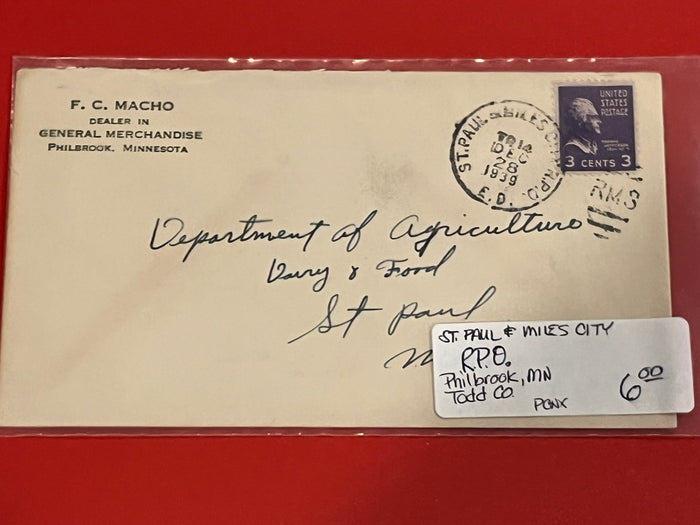 F. C. MACHO
DEALER IN
GENERAL MERCHANDISE
PHILBROOK, MINNESOTA
ST. PAUL & MILES CITY R.P.O.
TR 14
DEC
28
1939
E.D.
UNITED
STATES
POSTAGE
3 CENTS 3
RMS
Department of Agriculture
Dairy & Food
St Paul
M
ST. PAUL & MILES CITY
R.P.O.
Philbrook, MN
Todd Co.
PCNX
6.00